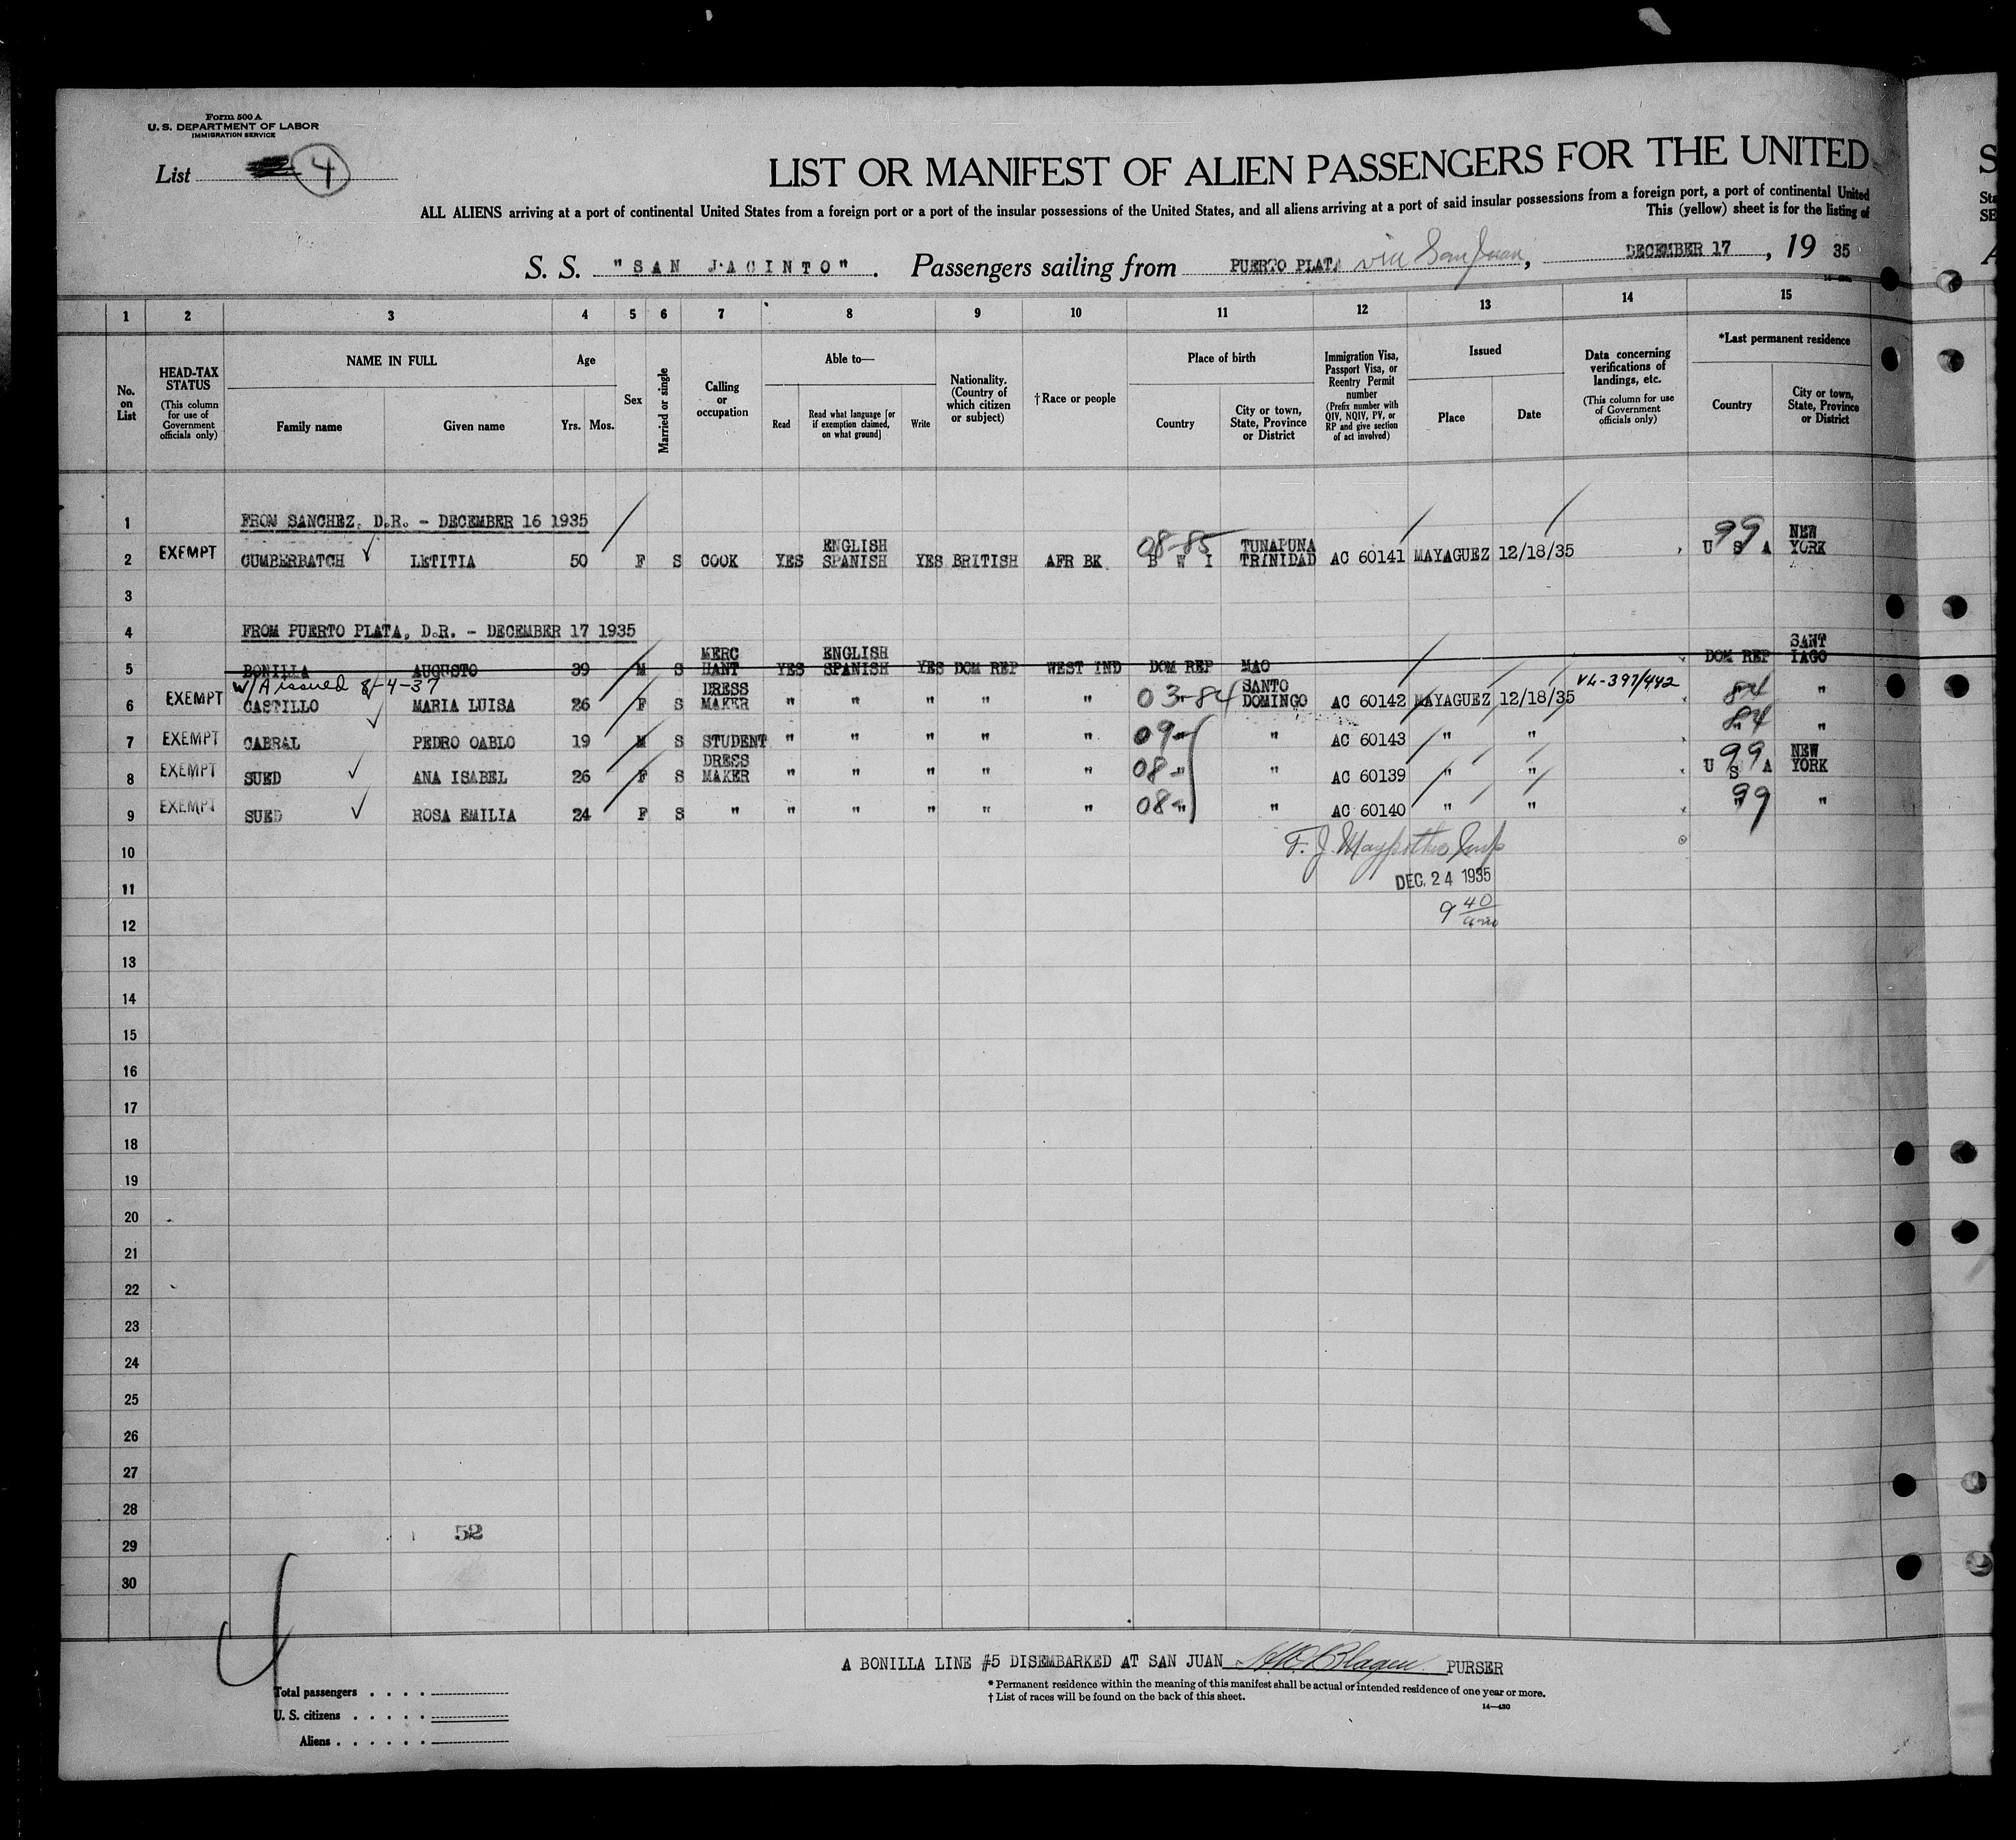 Form 500 A
U. S. DEPARTMENT OF LABOR
IMMIGRATION SERVICE
List 4
LIST OR MANIFEST OF ALIEN PASSENGERS FOR THE UNITED
ALL ALIENS arriving at a port of continental United States from a foreign port or a port of the insular possessions of the United States, and all aliens arriving at a port of said insular possessions from a foreign port, a port of continental United
This (yellow) sheet is for the listing of
S. S. "SAN JACINTO". Passengers sailing from PUERTO PLATA via San Juan, DECEMBER 17, 19 35
1 2 3 4 5 6 7 8 9 10 11 12 13 14 15
No. on List
HEAD-TAX STATUS (This column for use of Government officials only)
NAME IN FULL
Family name Given name
Age
Yrs. Mos.
Sex
Married or single
Calling or occupation
Able to—
Read
Read what language [or if exemption claimed, on what ground]
Write
Nationality. (Country of which citizen or subject)
† Race or people
Place of birth
Country
City or town, State, Province or District
Immigration Visa, Passport Visa, or Reentry Permit number (Prefix number with QIV, NQIV, PV, or RP and give section of act involved)
Issued
Place Date
Data concerning verifications of landings, etc. (This column for use of Government officials only)
*Last permanent residence
Country
City or town, State, Province or District
1 FROM SANCHEZ, D.R. - DECEMBER 16 1935
2 EXEMPT CUMBERBATCH LETITIA 50 F S COOK YES ENGLISH SPANISH YES BRITISH AFR BK 08-85 B W I TUNAPUNA TRINIDAD AC 60141 MAYAGUEZ 12/18/35 99 U S A NEW YORK
3
4 FROM PUERTO PLATA, D.R. - DECEMBER 17 1935
5 BONILLA AUGUSTO 39 M S MERC HANT YES ENGLISH SPANISH YES DOM REP WEST IND DOM REP MAO DOM REP SANT IAGO
W/A issued 8-4-37
6 EXEMPT CASTILLO MARIA LUISA 26 F S DRESS MAKER " " " " " 03-84 " SANTO DOMINGO AC 60142 MAYAGUEZ 12/18/35 VL-397/442 84 " "
7 EXEMPT CABRAL PEDRO OABLO 19 M S STUDENT " " " " " 09- " " AC 60143 " " 84 " "
8 EXEMPT SUED ANA ISABEL 26 F S DRESS MAKER " " " " " 08- " " AC 60139 " " 99 U S A NEW YORK
9 EXEMPT SUED ROSA EMILIA 24 F S " " " " " " 08- " " AC 60140 " " 99 " "
10 F. J.
11 DEC. 24 1935
12 9 40
13
14
15
16
17
18
19
20
21
22
23
24
25
26
27
28
52
29
30
A BONILLA LINE #5 DISEMBARKED AT SAN JUAN PURSER
* Permanent residence within the meaning of this manifest shall be actual or intended residence of one year or more.
† List of races will be found on the back of this sheet.
14—430
Total passengers . . . .
U. S. citizens . . . . .
Aliens . . . . . .